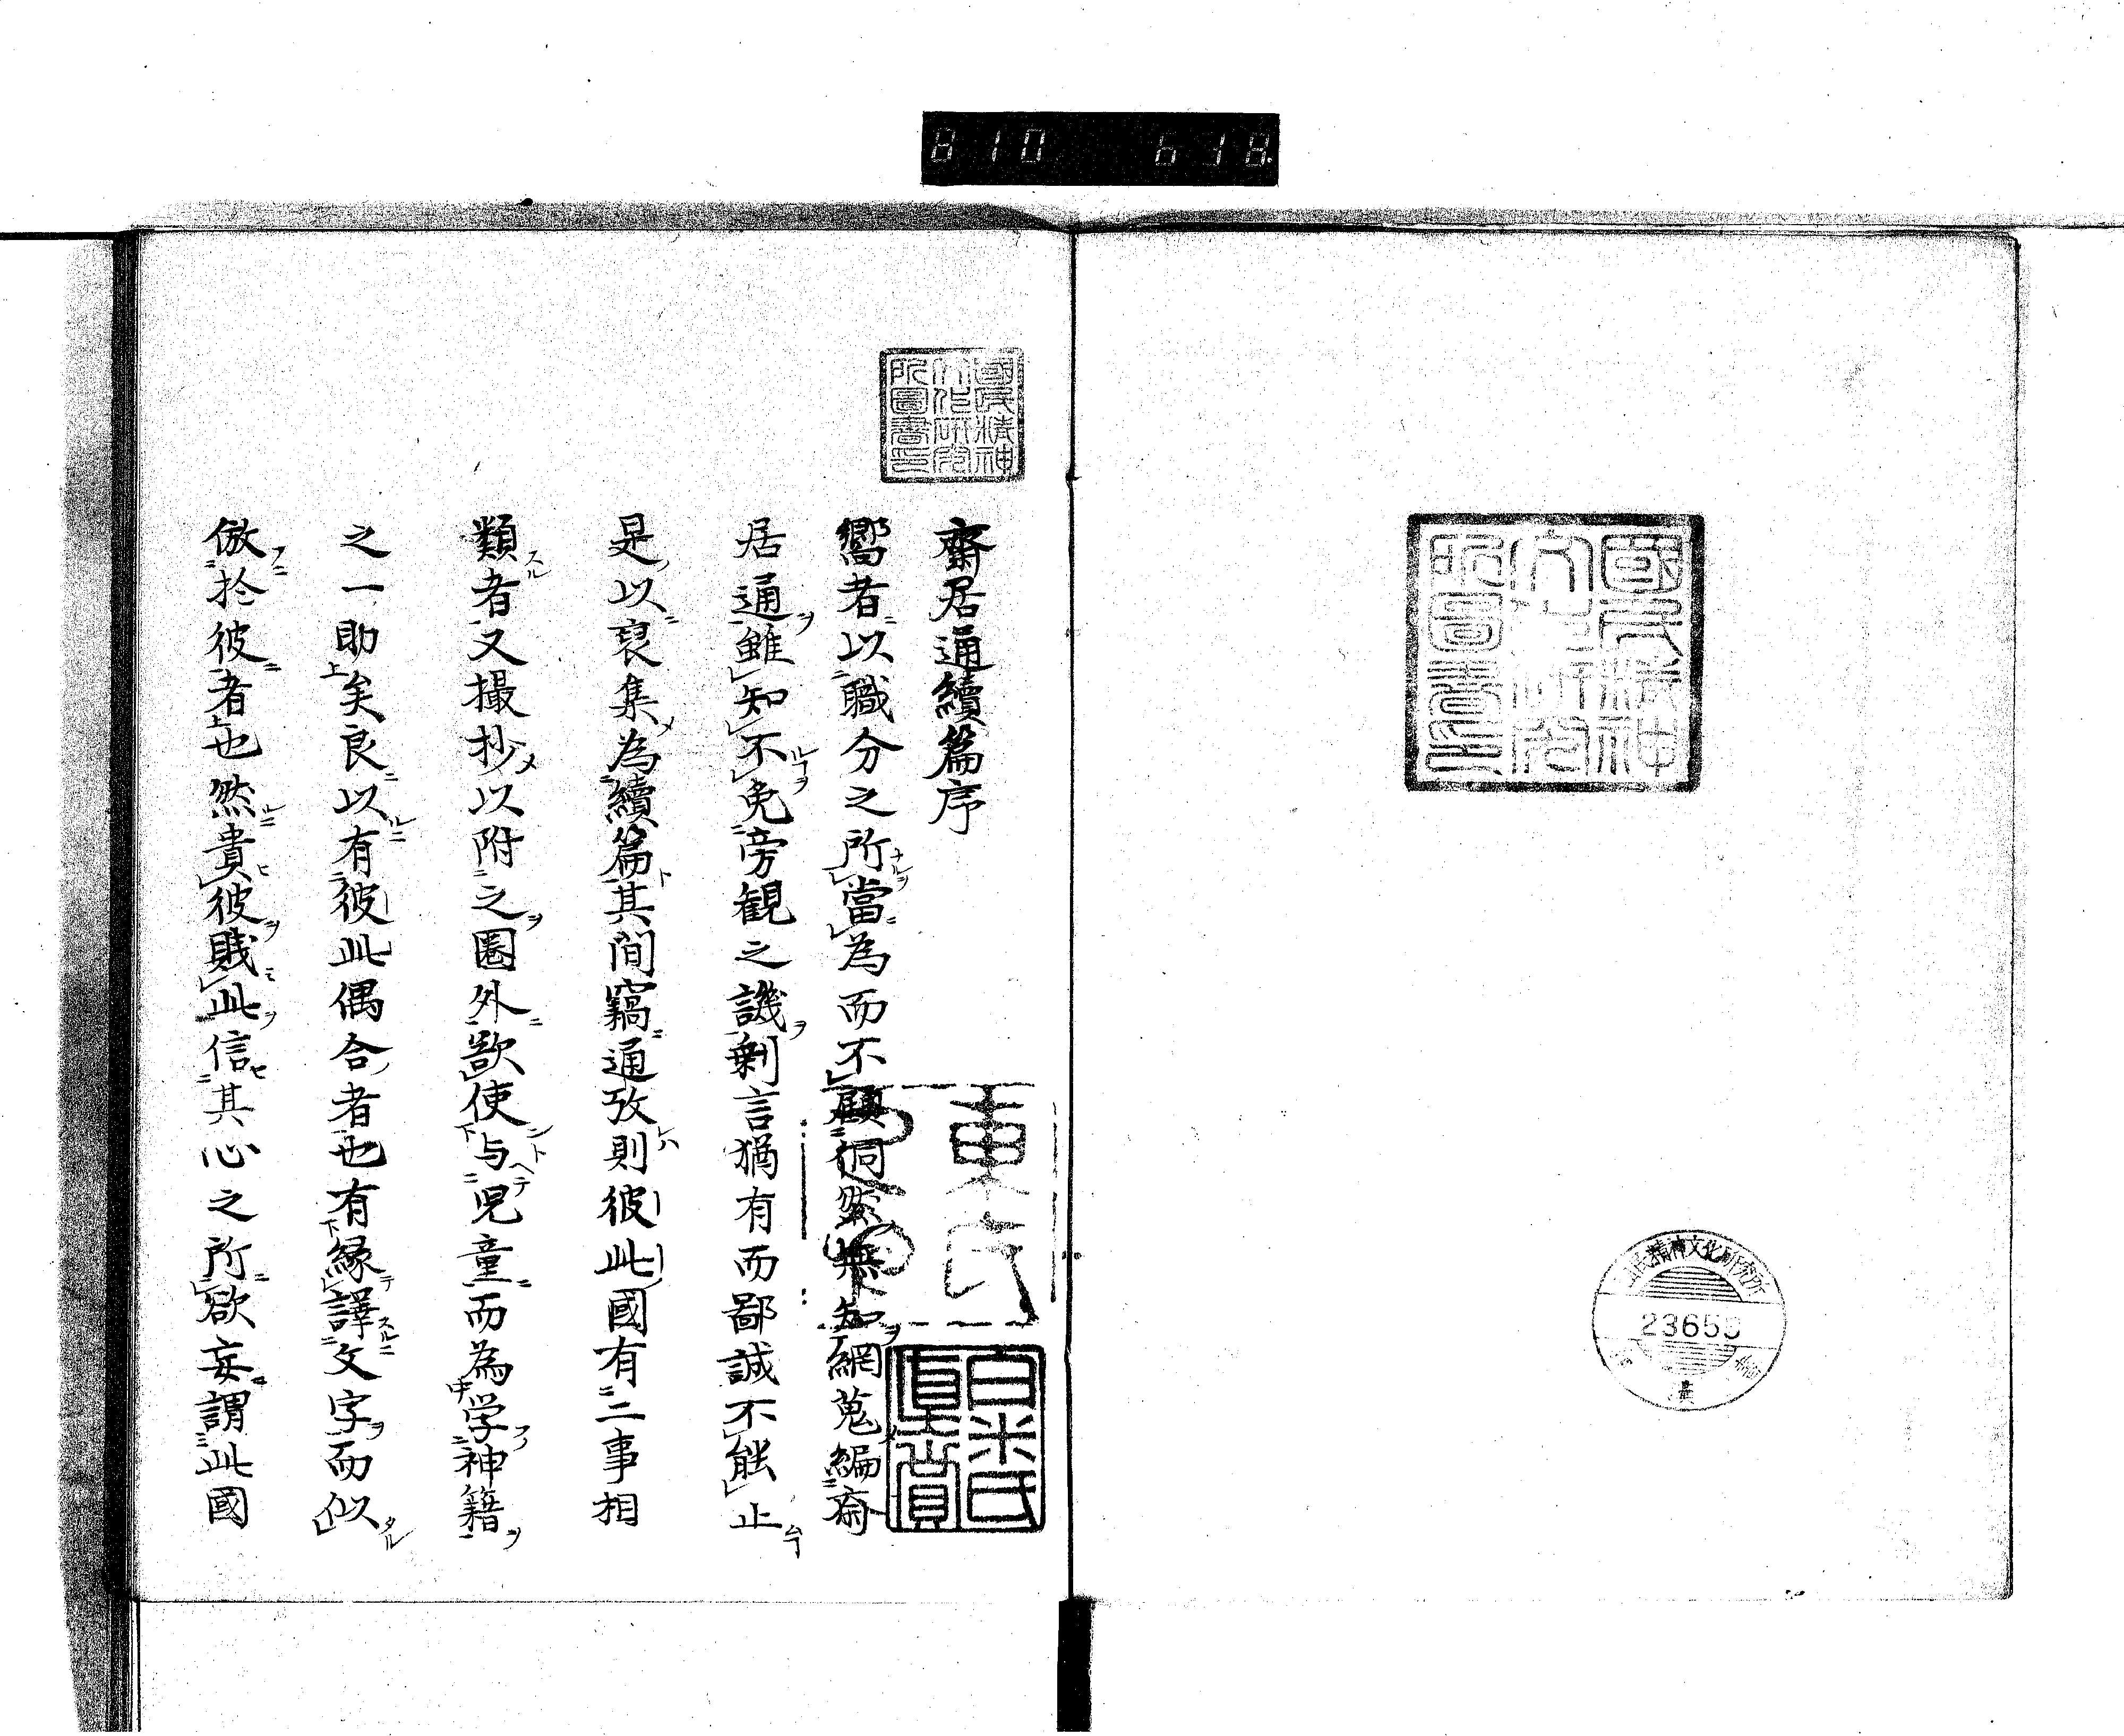 810 618
國民精神
文化研究
所圖書印
國民精神文化研究所
2365
國民精神
文化研究
所圖書印
齋居通續篇序
嚮者以職分之所當為而不顧侗然無知網蒐編齋
居通雖知不免旁観之譏剰言猶有而鄙誠不能止
是以裒集為續篇其間竊通攷則彼此國有二事相
類者又撮抄以附之圏外欲使与児童而為学神籍
之一助矣良以有彼此偶合者也有縁譯文字而似
倣於彼者也然貴彼賎此信其心之所欲妄謂此國
東氏
白米氏